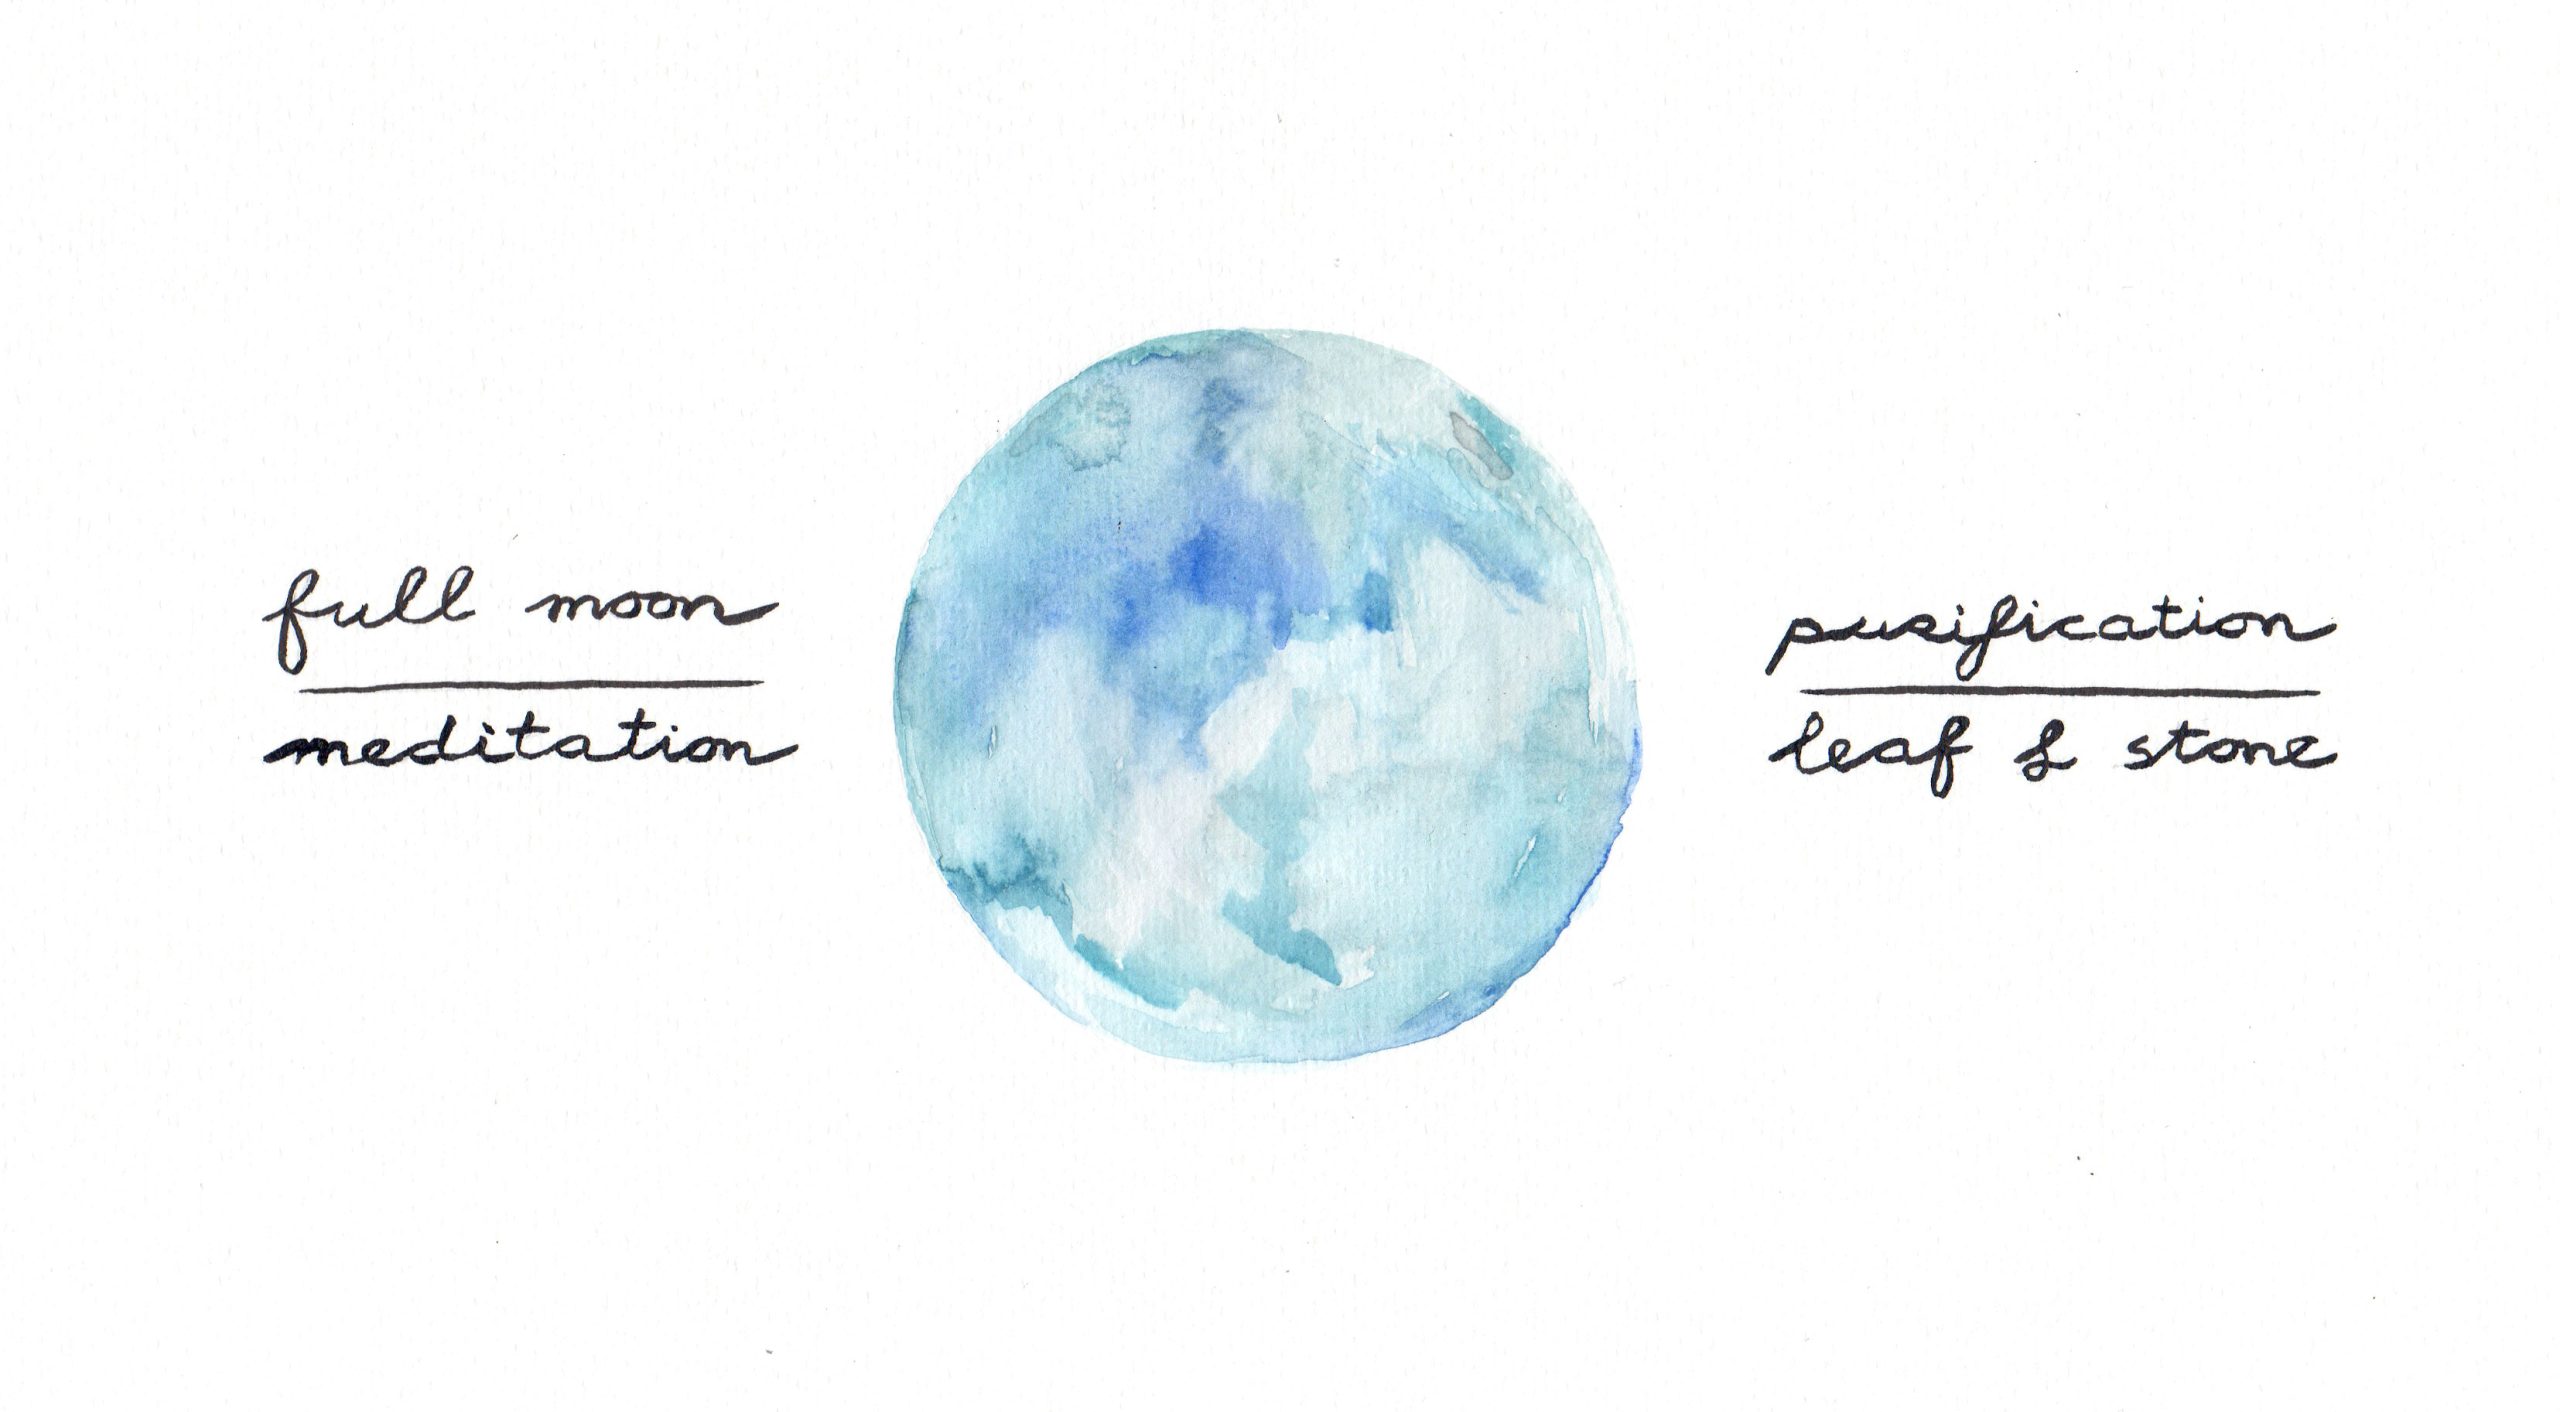 full moon
meditation
purification
leaf & stone